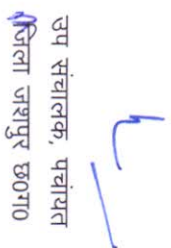 उप संचालक, पंचायत
जिला जशपुर छ०ग०